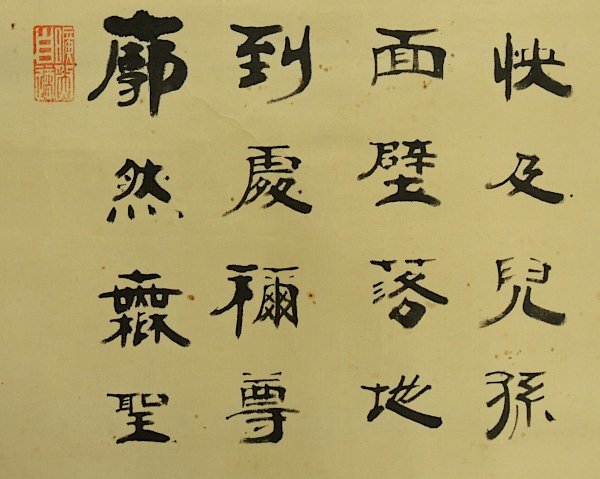 廓然無聖
到處穪尊
面壁落地
殃及兒孫